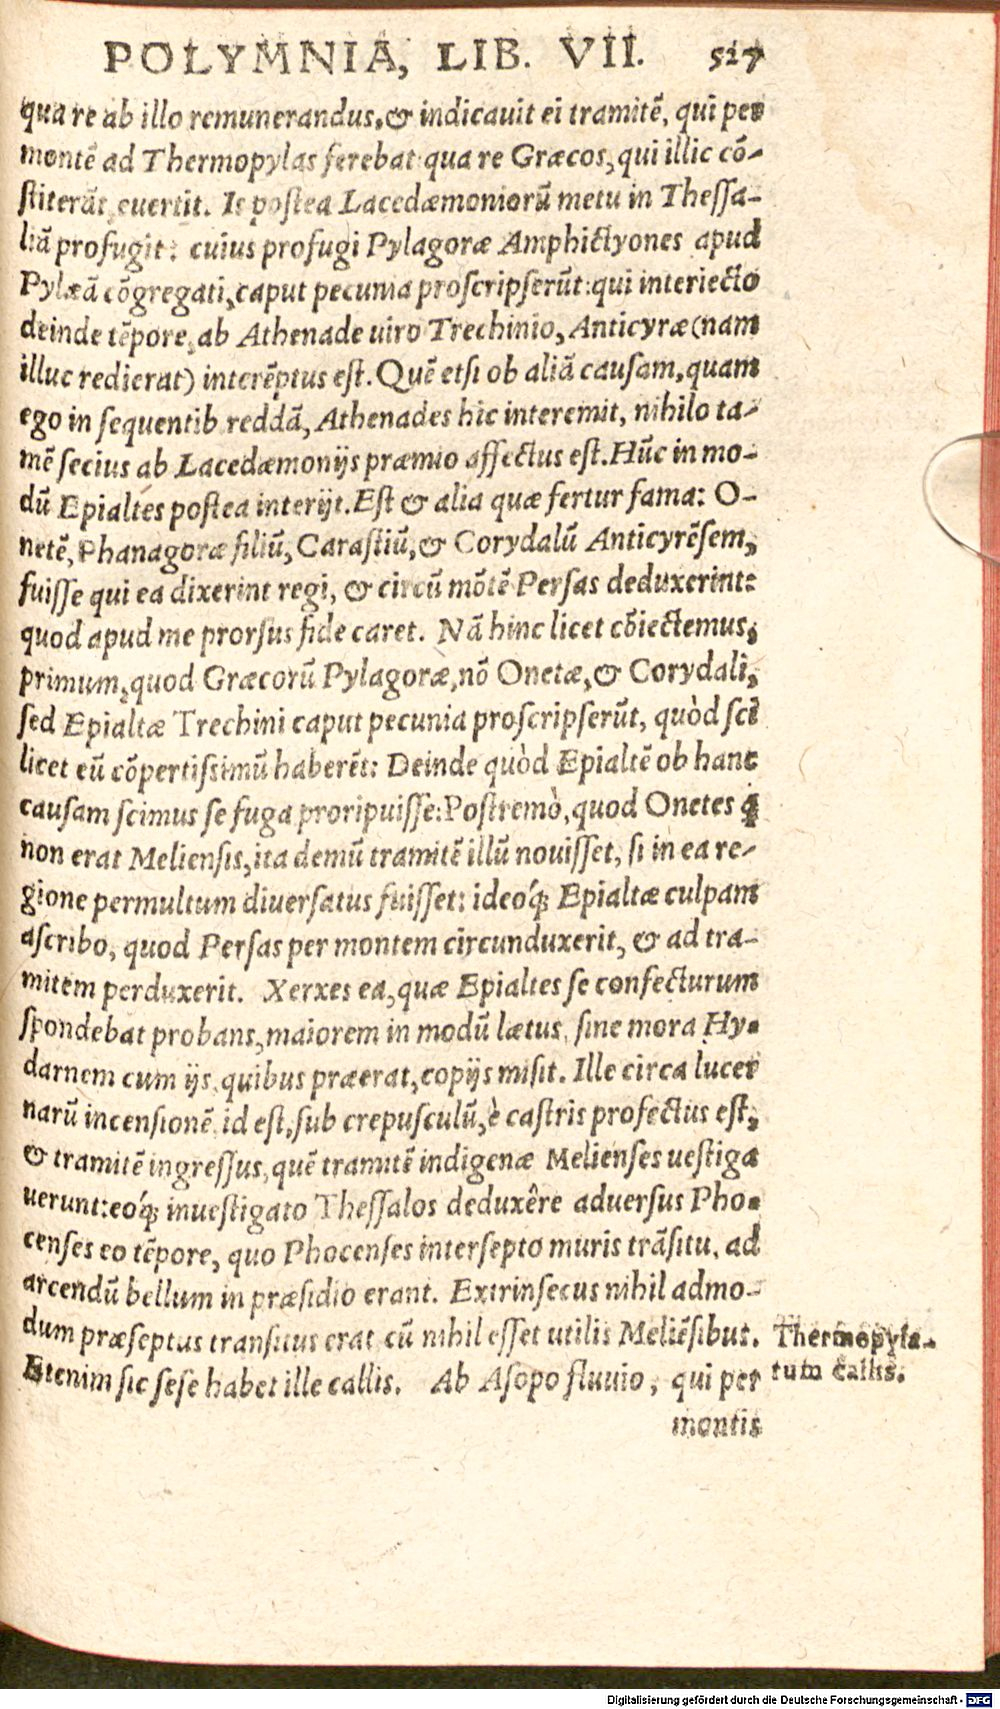 POLYMNIA, LIB. VII. 517
qua re ab illo remunerandus, & indicauit ei tramitẽ, qui per
montẽ ad Thermopylas ferebat: qua re Græcos, qui illic cõ-
ſtiterãt, euertit. Is poſtea Lacedæmoniorũ metu in Theſſa-
liã profugit: cuius profugi Pylagoræ Amphictyones apud
Pylæã cõgregati, caput pecunia proſcripſerũt: qui interiecto
deinde tẽpore, ab Athenade uiro Trechinio, Anticyræ (nam
illuc redierat) interẽptus eſt. Quẽ etſi ob aliã cauſam, quam
ego in ſequentib. reddã, Athenades hic interemit, nihilo ta-
mẽ ſecius ab Lacedæmonijs præmio affectus eſt. Hũc in mo-
dũ Epialtes poſtea interijt. Eſt & alia quæ fertur fama: O-
netẽ, Phanagoræ filiũ, Caraſtiũ, & Corydalũ Anticyrẽſem,
fuiſſe qui ea dixerint regi, & circũ mõtẽ Perſas deduxerint:
quod apud me prorſus fide caret. Nã hinc licet cõiectemus,
primum, quod Græcorũ Pylagoræ, nõ Onetæ, & Corydali,
ſed Epialtæ Trechini caput pecunia proſcripſerũt, quòd ſci
licet eũ cõpertiſsimũ haberẽt: Deinde quòd Epialtẽ ob hanc
cauſam ſcimus ſe fuga proripuiſſe: Poſtremò, quod Onetes q
non erat Melienſis, ita demũ tramitẽ illũ nouiſſet, ſi in ea re-
gione permultum diuerſatus fuiſſet: ideoq́; Epialtæ culpam
aſcribo, quod Perſas per montem circunduxerit, & ad tra-
mitem perduxerit. Xerxes ea, quæ Epialtes ſe confecturum
ſpondebat probans, maiorem in modũ lætus, ſine mora Hy-
darnem cum ijs, quibus præerat, copijs miſit. Ille circa lucer
narũ incenſionẽ, id eſt, ſub crepuſculũ, è caſtris profectus eſt,
& tramitẽ ingreſſus, quẽ tramitẽ indigenæ Melienſes ueſtiga
uerunt: eoq́; inueſtigato Theſſalos deduxêre aduerſus Pho-
cenſes eo tẽpore, quo Phocenſes interſepto muris trãſitu, ad
arcendũ bellum in præſidio erant. Extrinſecus nihil admo-
dum præſeptus tranſitus erat, cũ nihil eſſet utilis Meliẽſibus.
Etenim ſic ſeſe habet ille callis. Ab Aſopo fluuio, qui per
montis
Thermopyla-
rum callis.
Digitalisierung gefördert durch die Deutsche Forschungsgemeinschaft - DFG